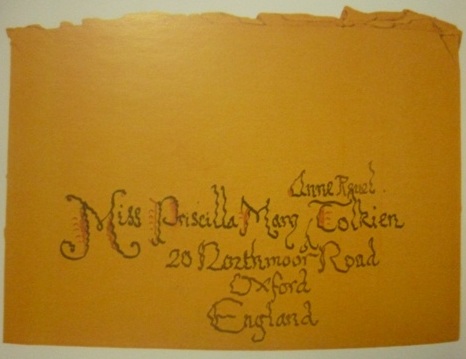 Anne Reuel
Miss Priscilla Mary Tolkien
20 Northmoor Road
Oxford
England